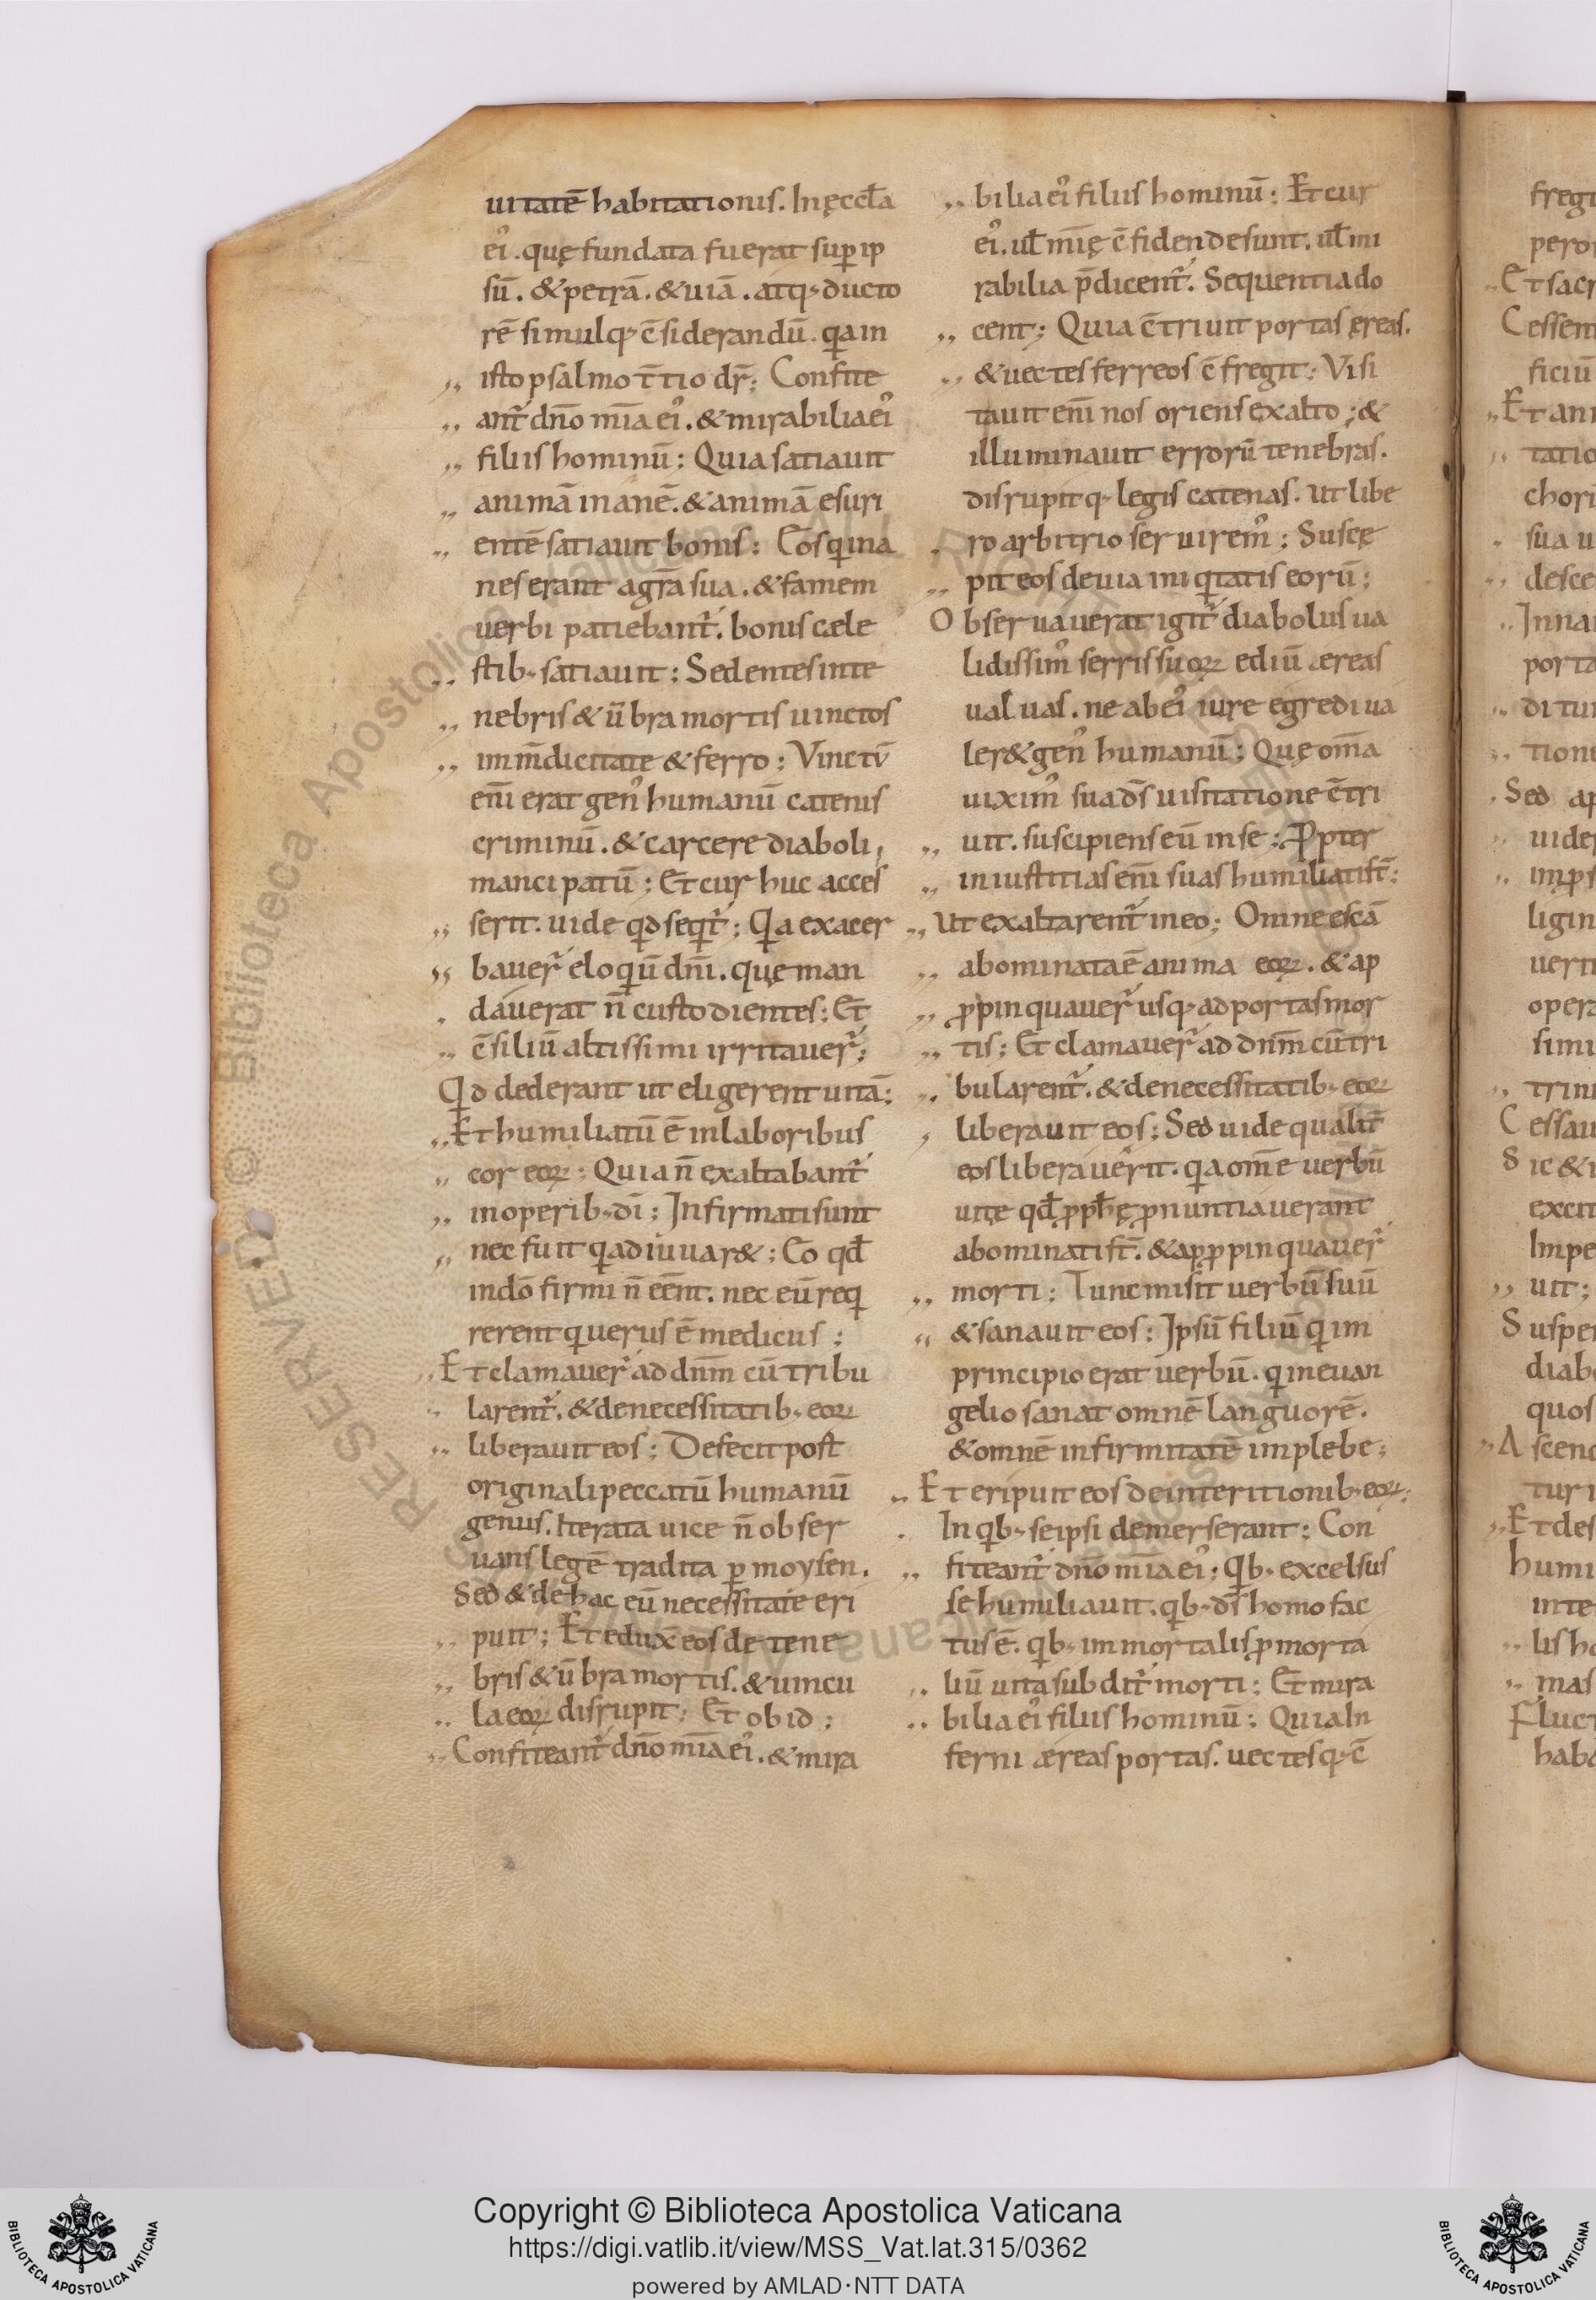 uitatē habitationis. In ęccl̄a
ei᾽. quę fundata fuerat sup̱ ip
sū. & petrā. & uiā. atq; ducto
rē simulq; c̄siderandū. q̱a in
isto psalmo t̄tio dr̄: Confite
ant᷑ dn̄o mīa ei᾽. & mirabilia ei᾽
filiis hominū: Quia satiauit
animā inanē. & animā esuri
entē satiauit bonis: Eos qui ina
nes erant agr̄a sua. & famem
uerbi patiebant᷑. bonis cæle
stib; satiauit: Sedentes in te
nebris & ūbra mortis uinctos
in m̄dicitate & ferro: Vinctū
enī erat gen᾽ humanū catenis
criminū. & carcere diaboli,
mancipatū: Et cur huc acces
serit. uide qd seqt᷑: Q̱a exacer
bauer᷑ eloq̱ū dn̄i. quę man
dauerat n̄ custodientes: Et
c̄siliū altissimi irritauer᷑:
Qd dederant ut eligerent uitā:
Et humiliatū ē in laboribus
cor eoꝝ: Quia n̄ exaltabant᷑
in operib; dī: Infirmati sunt
nec fuit qui adiuuar&: Eo qd̄
in dō firmi n̄ eēnt. nec eū req
rerent qui uerus ē medicus:
Et clamauer᷑ ad dn̄m cū tribu
larent᷑. & de necessitatib; eoꝝ
liberauit eos: Defecit post
originali peccatū humanū
genus. Iterata uice n̄ obser
uans legē tradita p̱ moysen.
Sed & de hac eū necessitate eri
puit: Et edux̄ eos de tene
bris & ūbra mortis. & uincu
la eoꝝ disrupit: Et ob id:
Confiteant᷑ dn̄o mīa ei᾽. & mira
bilia ei᾽ filiis hominū: Et cur
ei᾽. ul̄ mīę c̄fidende sunt. ul̄ mi
rabilia p̄dicent᷑. Sequentia do
cent: Quia c̄triuit portas ęreas.
& uectes ferreos c̄fregit: Visi
tauit enī nos oriens ex alto: &
illuminauit errorū tenebras.
disrupitq; legis catenas. ut libe
ro arbitrio seruirem᾽: Suscę
pit eos de uia iniq̱tatis eorū:
Obseruauerat igit᷑ diabolus ua
lidissim᾽ serris suoꝝ ediū æreas
ualuas. ne ab ei᾽ iure egredi ua
ler& gen᾽ humanū: Quę om̄a
uixim᾽ sua d̄s uisitatione c̄tri
uit. suscipiens eū in se: Ꝓpter
iniustitias enī suas humiliati sī̄:
Ut exaltarent᷑ in eo: Omne escā
abominata ē anima eoꝝ. & ap
ꝓpinquauer᷑ usq; ad portas mor
tis: Et clamauer᷑ ad dn̄m cū tri
bularent᷑. & de necessitatib; eoꝝ
liberauit eos: Sed uide qualit̄
eos liberauerit. q̱a om̄e uerbū
uitę qd̄ ꝓph̄ę ꝓnuntiauerant
abominati st̄. & apꝓpinquauer᷑
morti: Tunc misit uerbū suū
& sanauit eos: Ipsū filiū qui in
principio erat uerbū. qui in euan
gelio sanat omnē languorē.
& omnē infirmitatē in plebe:
Et eripuit eos de interitionib; eoꝝ:
In qb; se ipsi demerserant: Con
fiteant᷑ dn̄o mīa ei᾽: Qb; excelsus
se humiliauit. qb; d̄s homo fac
tus ē. qb; immortalis ꝓ morta
liū uita subdit᷑ morti: Et mira
bilia ei᾽ filiis hominū: Quia In
ferni æreas portas. uectesq; c̄
Copyright © Biblioteca Apostolica Vaticana
https://digi.vatlib.it/view/MSS_Vat.lat.315/0362
powered by AMLAD·NTT DATA